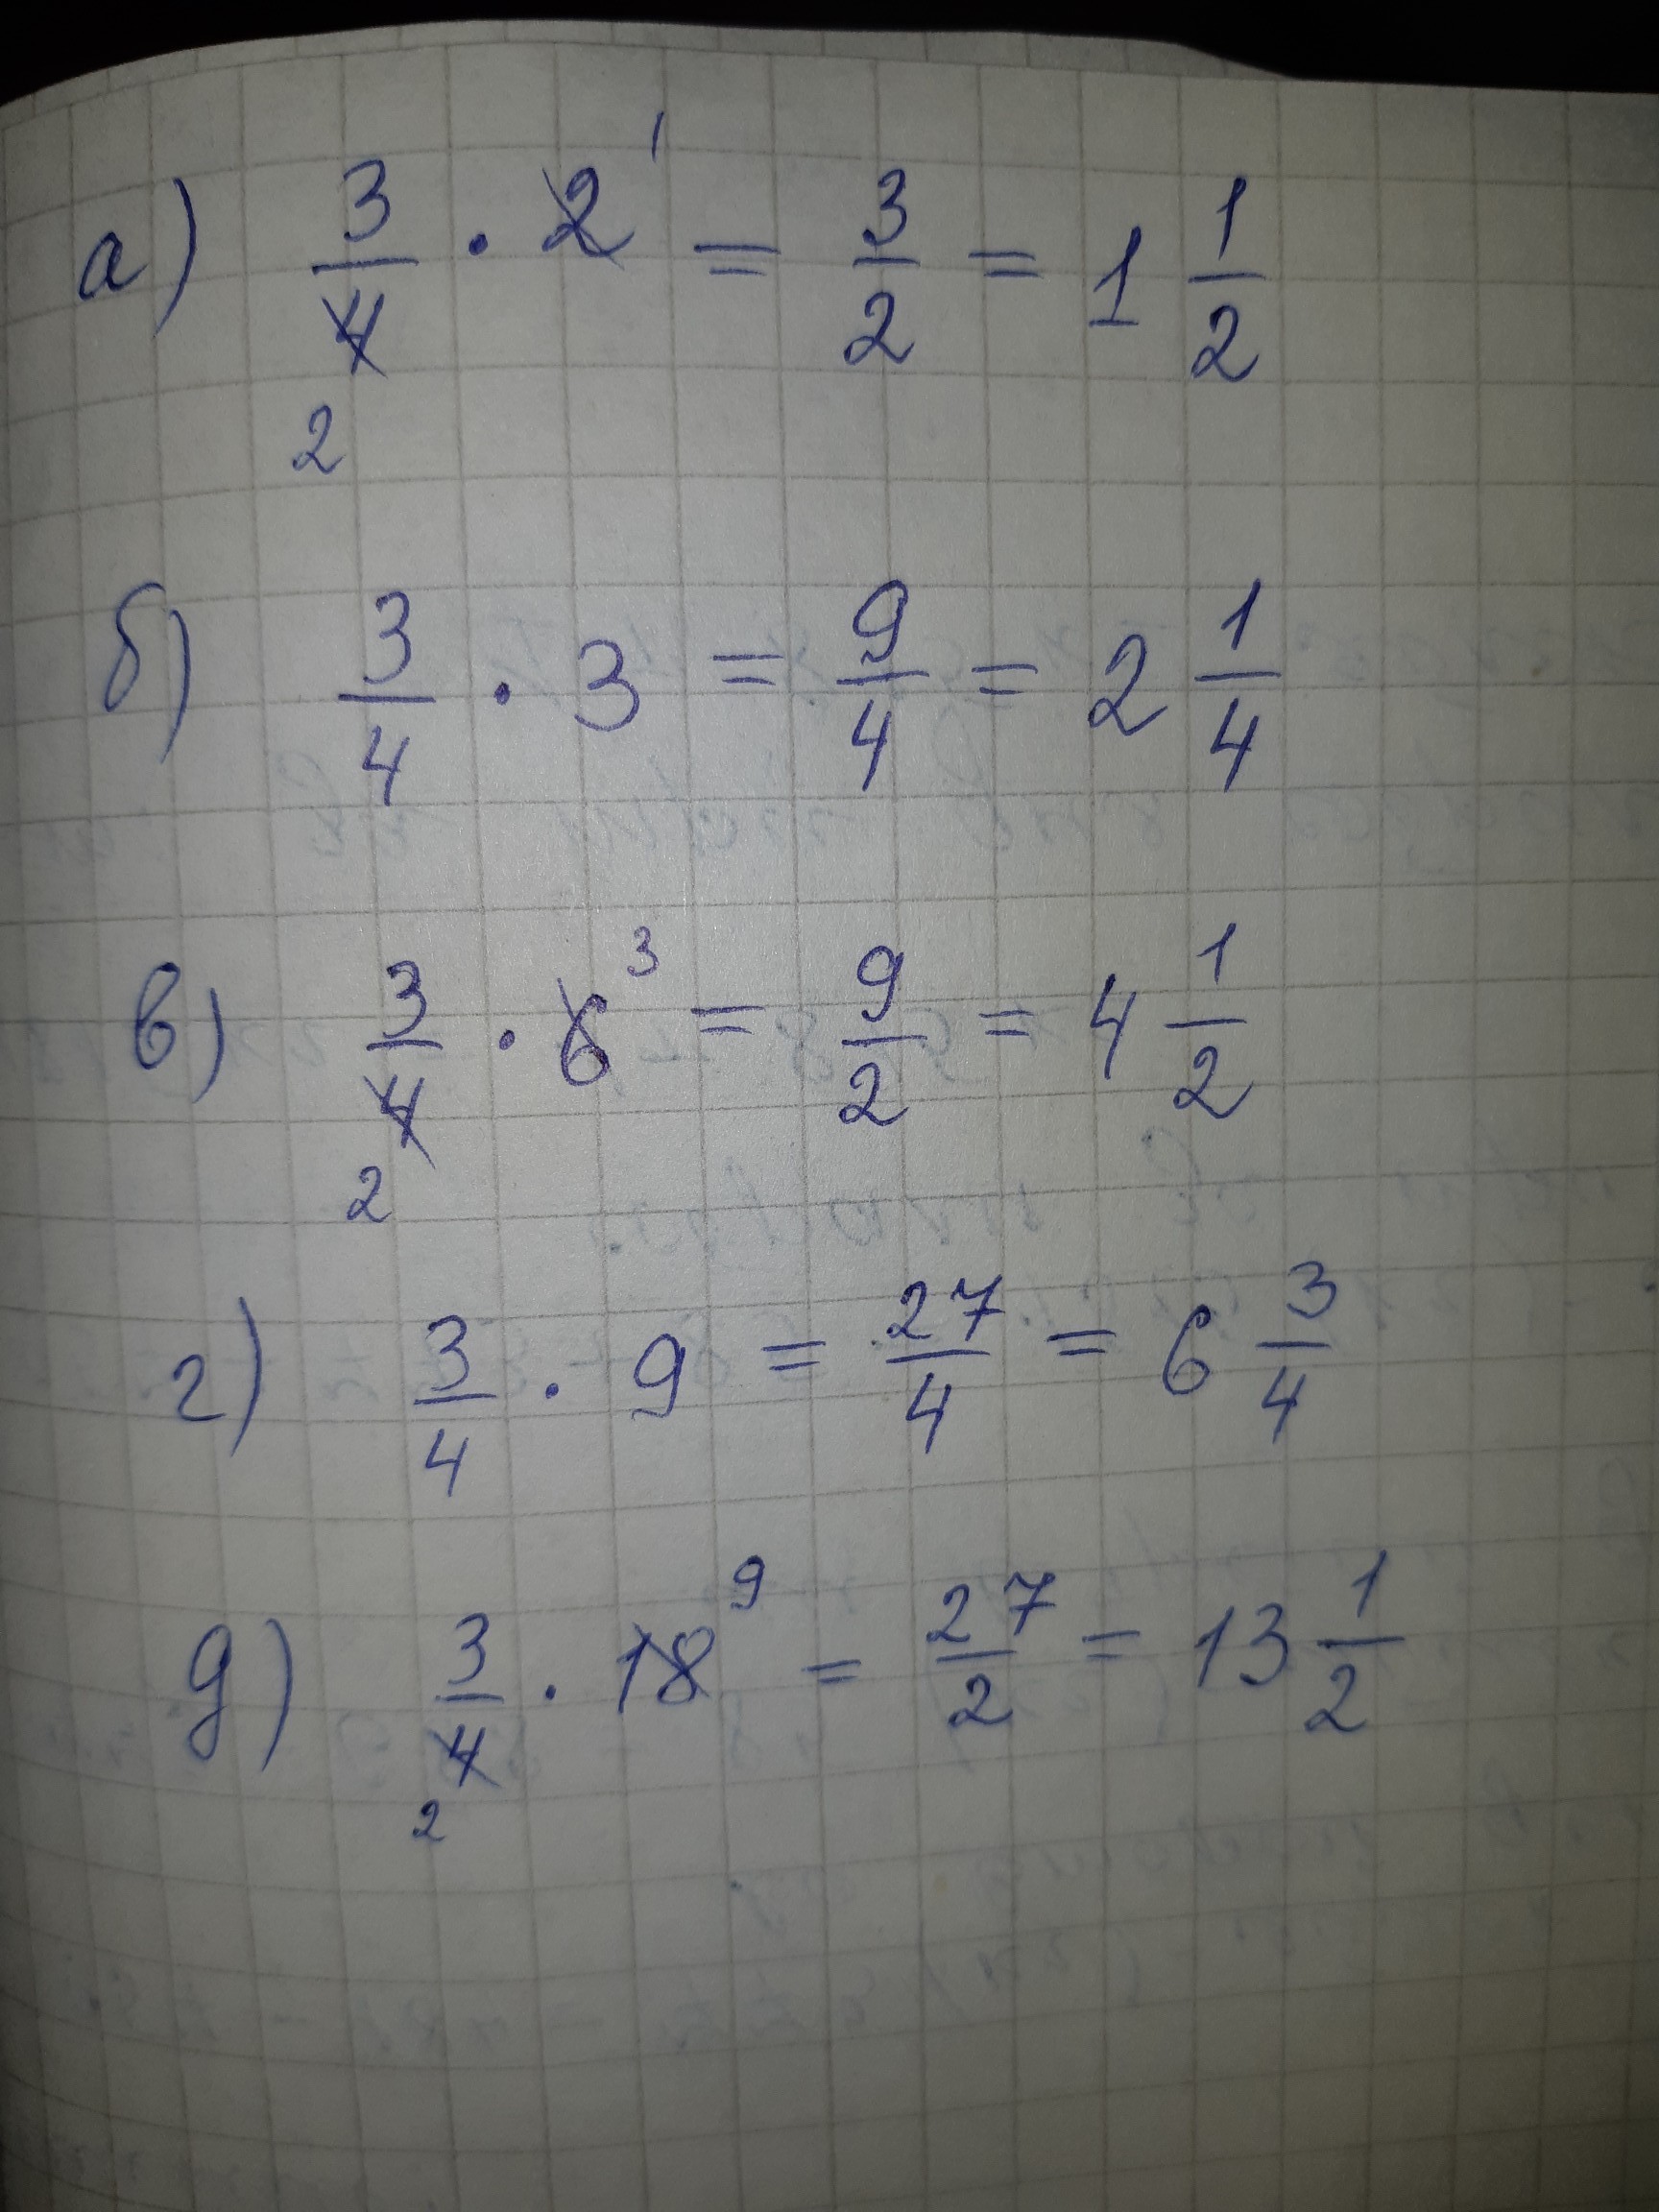 а) 3/4 · 2 1 = 3/2 = 1 1/2
2
б) 3/4 · 3 = 9/4 = 2 1/4
в) 3/4 · 6 3 = 9/2 = 4 1/2
2
г) 3/4 · 9 = 27/4 = 6 3/4
д) 3/4 · 18 9 = 27/2 = 13 1/2
2